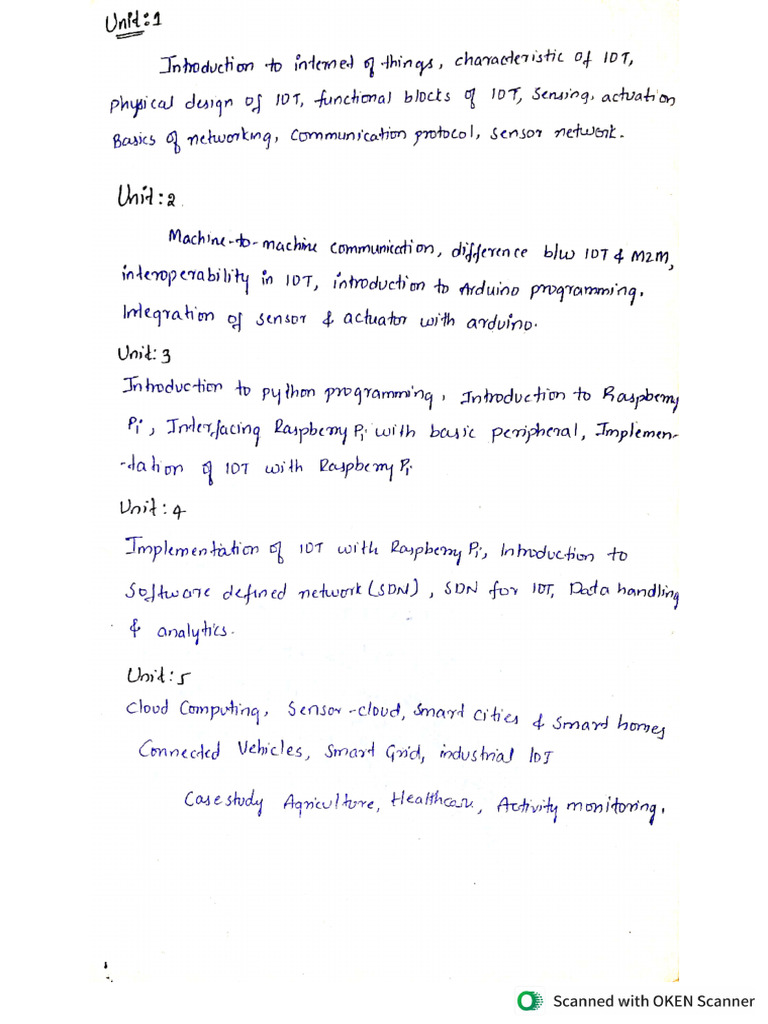 Unit:1
Introduction to internet of things, characteristic of IOT,
physical design of IOT, functional blocks of IOT, Sensing, actuation
Basics of networking, communication protocol, sensor network.
Unit:2
Machine-to-machine communication, difference b/w IOT & M2M,
interoperability in IOT, introduction to Arduino programming,
Integration of sensor & actuator with arduino.
Unit:3
Introduction to python programming, Introduction to Raspberry
Pi, Interfacing Raspberry Pi with basic peripheral, Implemen-
-tation of IOT with Raspberry Pi
Unit:4
Implementation of IOT with Raspberry Pi, Introduction to
Software defined network (SDN), SDN for IOT, Data handling
& analytics.
Unit:5
Cloud Computing, Sensor-cloud, smart cities & smart homes
Connected Vehicles, Smart Grid, industrial IOT
Case study Agriculture, Healthcare, Activity monitoring.
Scanned with OKEN Scanner